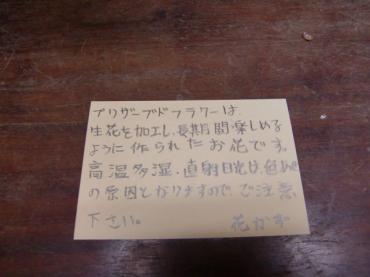 プリザーブドフラワーは
生花を加工し、長期間楽しめる
ように作られたお花です。
高温多湿、直射日光は、色あせ
の原因となりますので、ご注意
下さい。 花かず